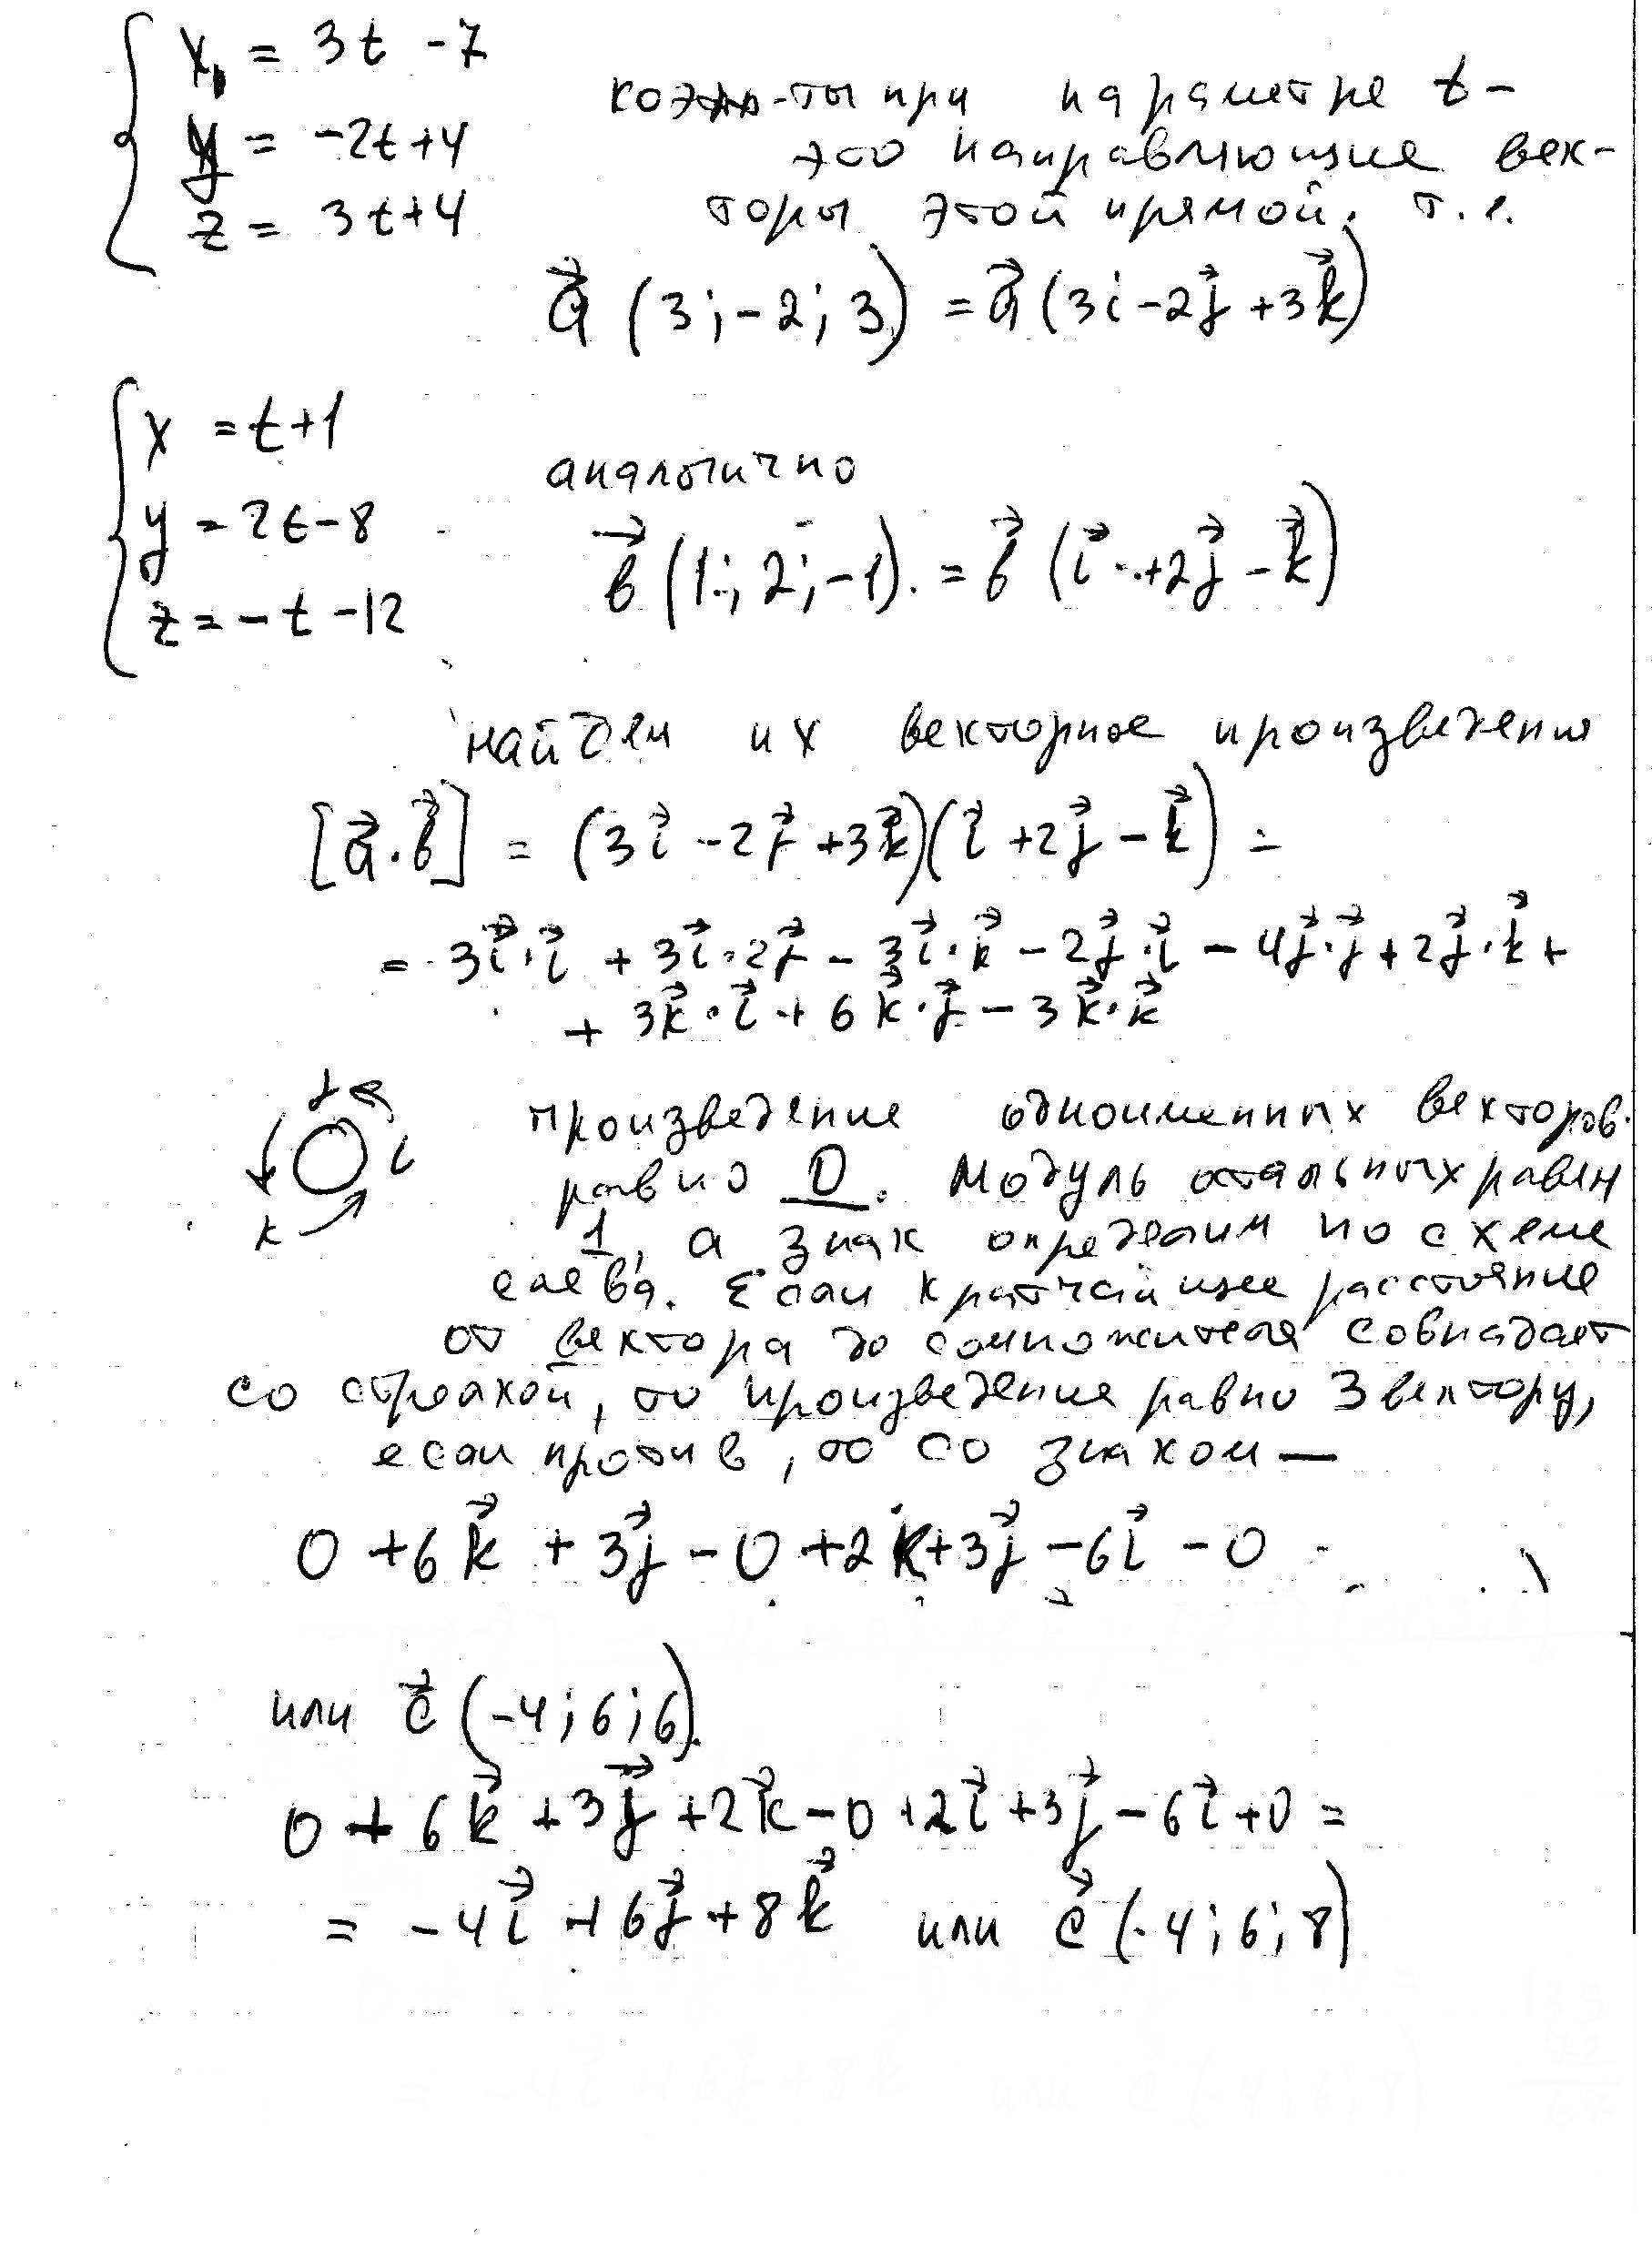 x = 3t - 7
y = -2t+4
z = 3t+4
коэфф-ты при параметре t -
это направляющие век-
торы этой прямой. т.е.
a⃗ (3; -2; 3) = a⃗ (3i - 2j⃗ + 3k⃗)
x = t+1
y = 2t-8
z = -t -12
аналогично
b⃗ (1; 2; -1). = b⃗ (i⃗ + 2j⃗ - k⃗)
найдем их векторное произведения
[a⃗·b⃗] = (3i⃗ - 2j⃗ + 3k⃗)(i⃗ + 2j⃗ - k⃗) =
= 3i⃗·i⃗ + 3i⃗·2j⃗ - 3i⃗·k⃗ - 2j⃗·i⃗ - 4j⃗·j⃗ + 2j⃗·k⃗ +
+ 3k⃗·i⃗ + 6k⃗·j⃗ - 3k⃗·k⃗
j
i
k
произведение одноименных векторов.
равно 0. Модуль остальных равен
1, а знак определим по схеме
слева. Если кратчайшее расстояние
от вектора до сомножителя совпадает
со стрелкой, то произведение равно 3 вектору,
если против, то со знаком —
0 + 6k⃗ + 3j⃗ - 0 + 2k + 3j⃗ - 6i⃗ - 0
или c⃗ (-4; 6; 6).
0 + 6k⃗ + 3j⃗ + 2k⃗ - 0 + 2i⃗ + 3j⃗ - 6i⃗ + 0 =
= -4i⃗ + 6j⃗ + 8k⃗ или c⃗ (-4; 6; 8)